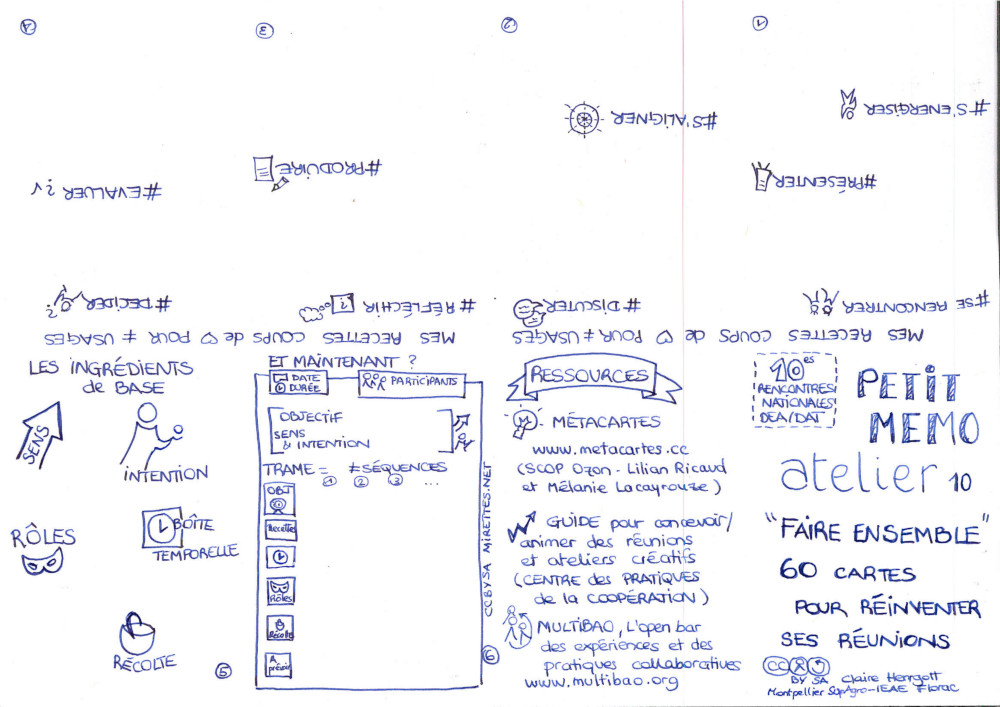 PETIT
MEMO
atelier 10
10es
RENCONTRES
NATIONALES
DEA/DAT
"FAIRE ENSEMBLE"
60 CARTES
POUR RÉINVENTER
SES RÉUNIONS
CC
BY SA Claire Herrgott
Montpellier SupAgro-IEAE Florac
1
#S'ENERGISER
#PRÉSENTER
#SE RENCONTRER
MES RECETTES COUPS de ♡ POUR ≠ USAGES
2
#S'ALIGNER
#DISCUTER
3
#PRODUIRE
#RÉFLÉCHIR
MES RECETTES COUPS de ♡ POUR ≠ USAGES
4
#EVALUER
#DÉCIDER
LES INGRÉDIENTS
de BASE
SENS
INTENTION
RÔLES
BOÎTE
TEMPORELLE
RÉCOLTE
5
ET MAINTENANT ?
DATE
DURÉE
PARTICIPANTS
OBJECTIF
SENS
& INTENTION
TRAME = ≠ SÉQUENCES
1 2 3 ...
OBJ
Recette
RÔLES
RÉCOLTE
A
prévoir
CC BY SA MIRETTES.NET
6
RESSOURCES
MÉTACARTES
www.metacartes.cc
(SCOP Ozon - Lilian Ricaud
et Mélanie Lacayrouze)
GUIDE pour concevoir/
animer des réunions
et ateliers créatifs
(CENTRE des PRATIQUES
de la COOPÉRATION)
MULTIBAO, L'open bar
des expériences et des
pratiques collaboratives
www.multibao.org